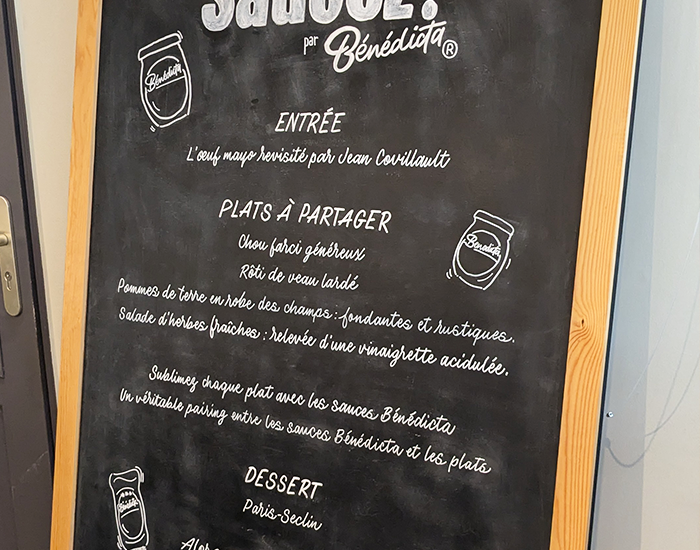 par Bénédicta®
Bénédicta
ENTRÉE
L'œuf mayo revisité par Jean Covillault
PLATS À PARTAGER
Chou farci généreux
Bénédicta
Rôti de veau lardé
Pommes de terre en robe des champs : fondantes et rustiques.
Salade d'herbes fraîches : relevée d'une vinaigrette acidulée.
Sublimez chaque plat avec les sauces Bénédicta
Un véritable pairing entre les sauces Bénédicta et les plats
DESSERT
Bénédicta
Paris-Seclin